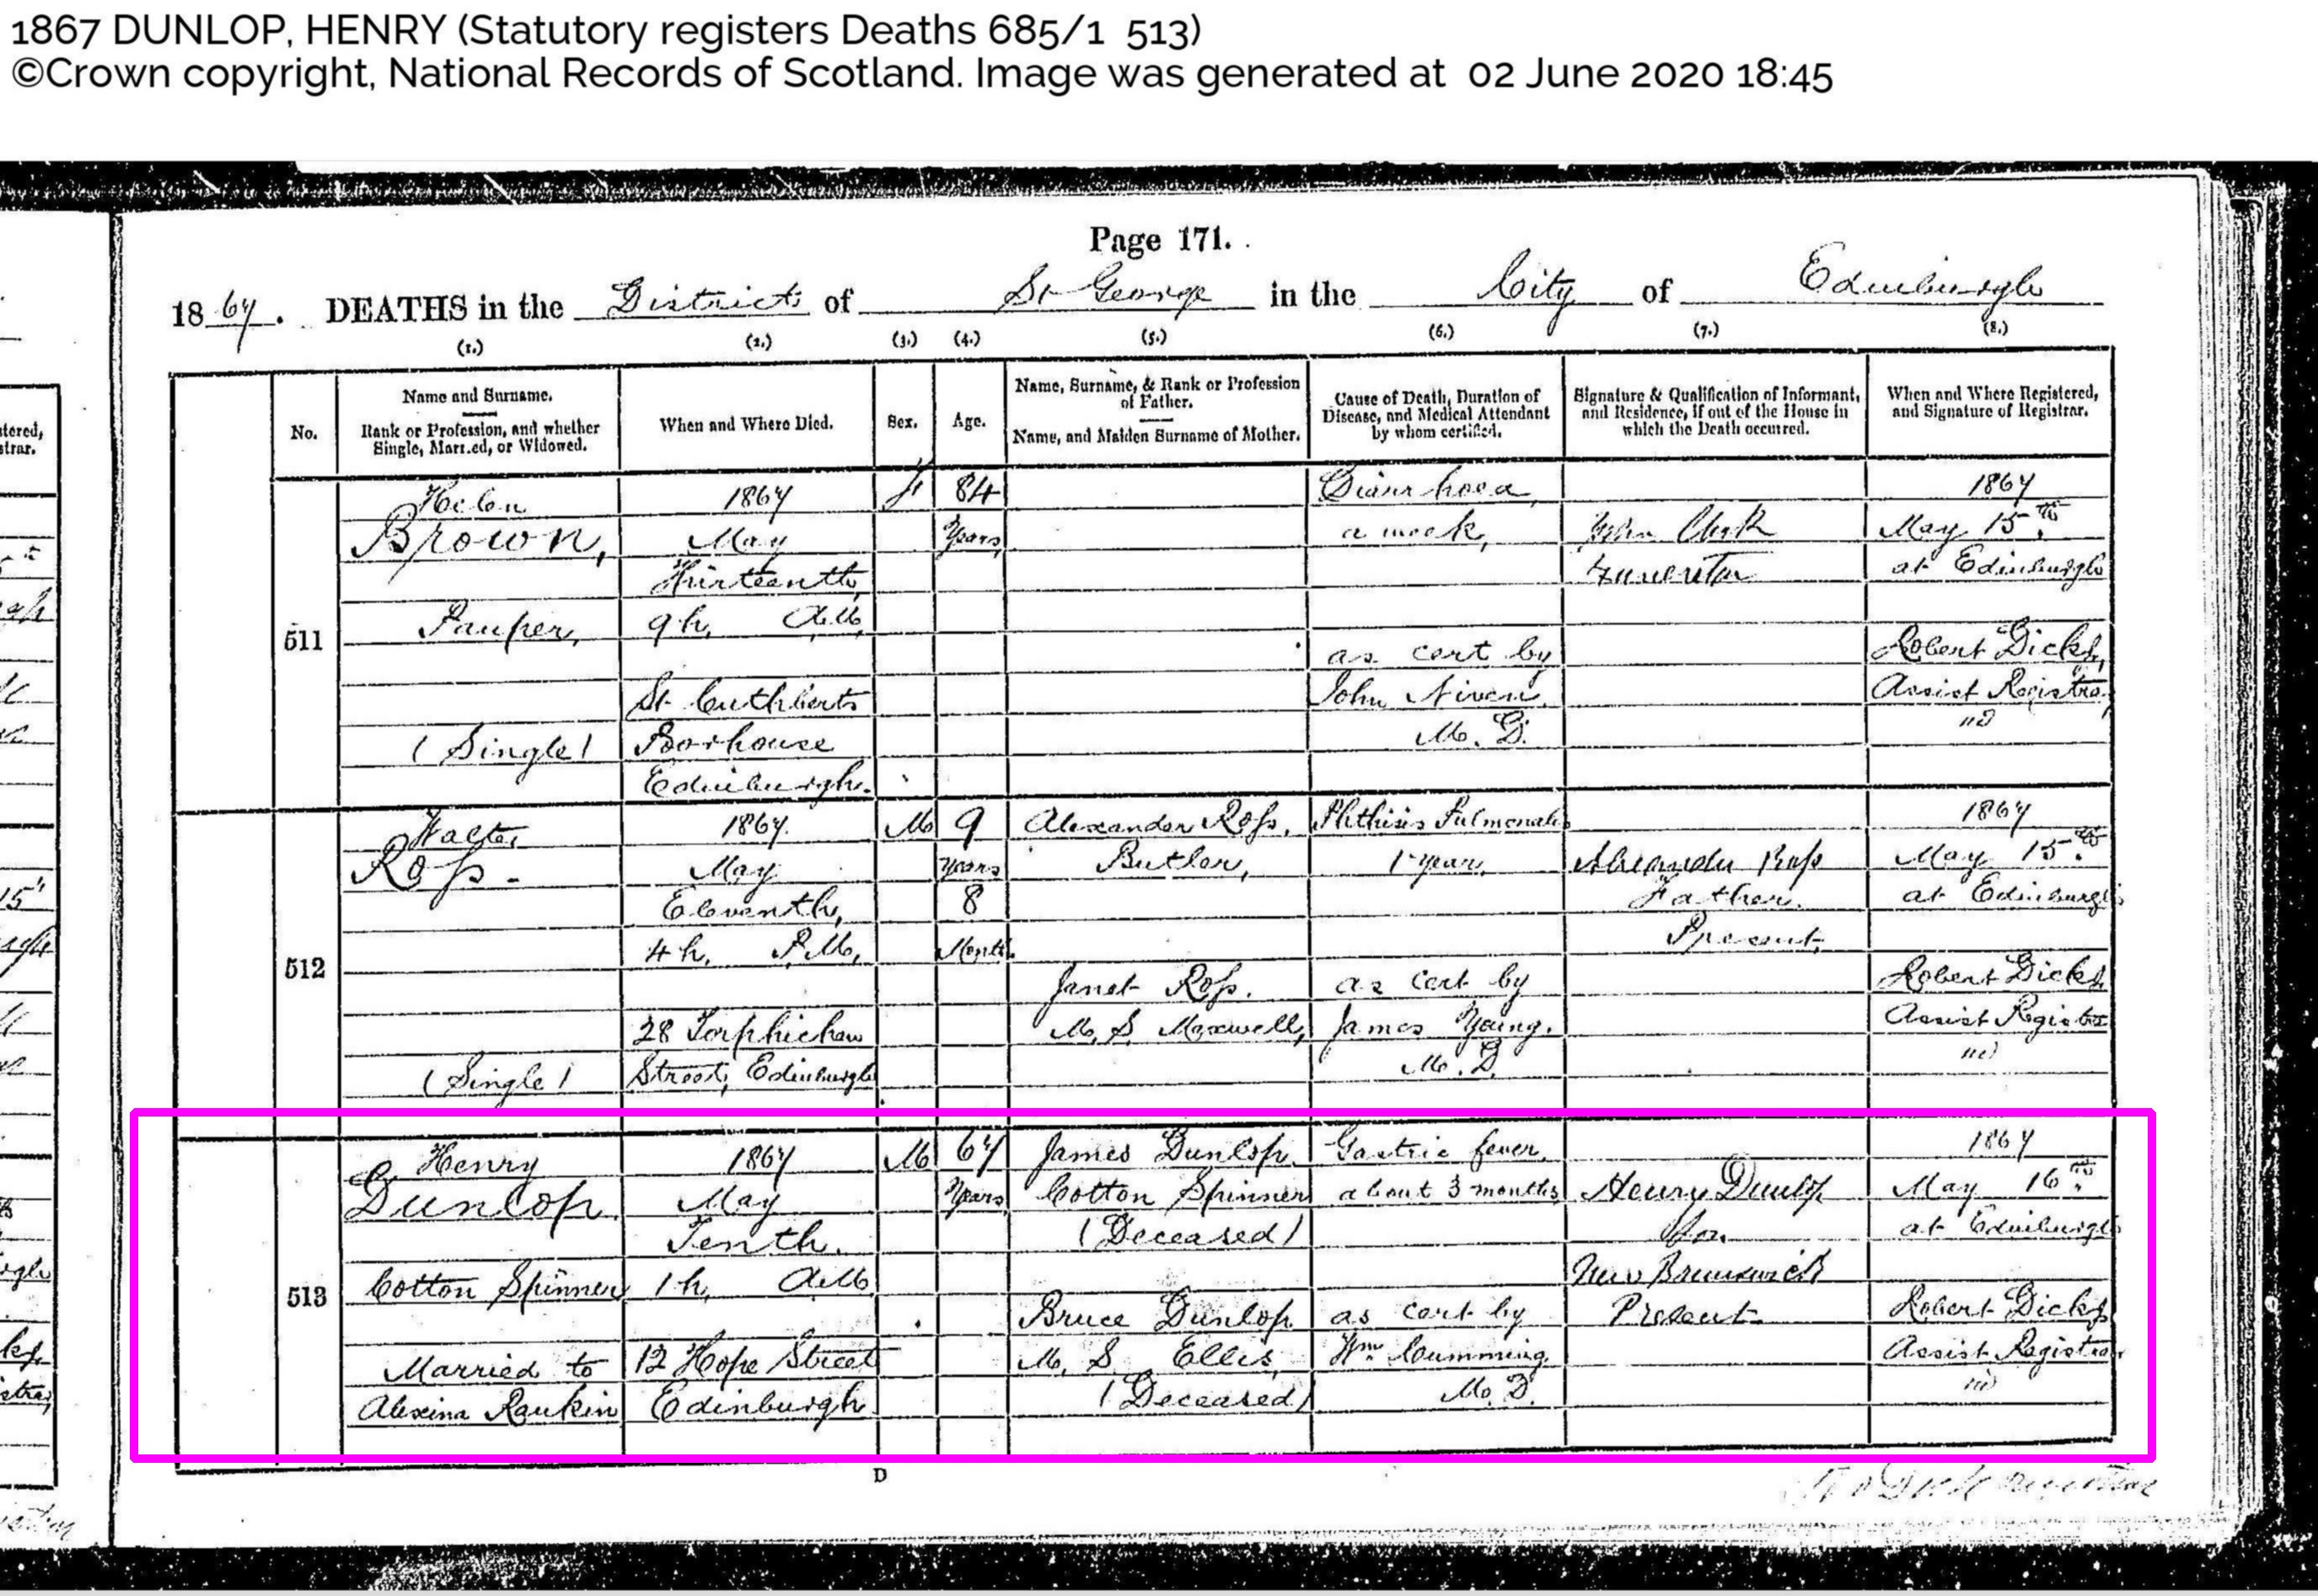 1867 DUNLOP, HENRY (Statutory registers Deaths 685/1 513)
©Crown copyright, National Records of Scotland. Image was generated at 02 June 2020 18:45
Page 171.
1867. DEATHS in the District of St George in the City of Edinburgh
(1.) (2.) (3.) (4.) (5.) (6.) (7.) (8.)
No.
Name and Surname.
Rank or Profession, and whether
Single, Married, or Widowed.
When and Where Died.
Sex.
Age.
Name, Surname, & Rank or Profession
of Father.
Name, and Maiden Surname of Mother.
Cause of Death, Duration of
Disease, and Medical Attendant
by whom certified.
Signature & Qualification of Informant,
and Residence, if out of the House in
which the Death occurred.
When and Where Registered,
and Signature of Registrar.
511
Helen
Brown,
Pauper,
(Single)
1867
May
Thirteenth,
9 h. A.M.
St. Cuthberts
Poorhouse
Edinburgh.
F
84
Years
Diarrhoea
a week,
as cert by
John Niven
M. D.
John Clark
1867
May 15th
at Edinburgh
Robert Dick,
Assist Registrar
512
Walter
Ross.
(Single)
1867.
May
Eleventh,
4 h. P.M.
28 Torphichen
Street, Edinburgh
M
9
Years
8
Months
Alexander Ross,
Butler,
Janet Ross.
M. S. Maxwell,
Phthisis Pulmonalis
1 year,
as cert by
James Young.
M. D.
Alexander Ross
Father.
Present
1867
May 15th
at Edinburgh
Robert Dick
Assist Registrar
513
Henry
Dunlop.
Cotton Spinner
Married to
Alexina Rankin
1867
May
Tenth.
1 h. A.M.
12 Hope Street
Edinburgh.
M
67
Years
James Dunlop,
Cotton Spinner
(Deceased)
Bruce Dunlop
M. S. Ellis,
(Deceased)
Gastric fever,
about 3 months
as cert by
Wm Cumming.
M. D.
Henry Dunlop
Son
New Brunswick
Present
1867
May 16th
at Edinburgh
Robert Dick
Assist Registrar
D